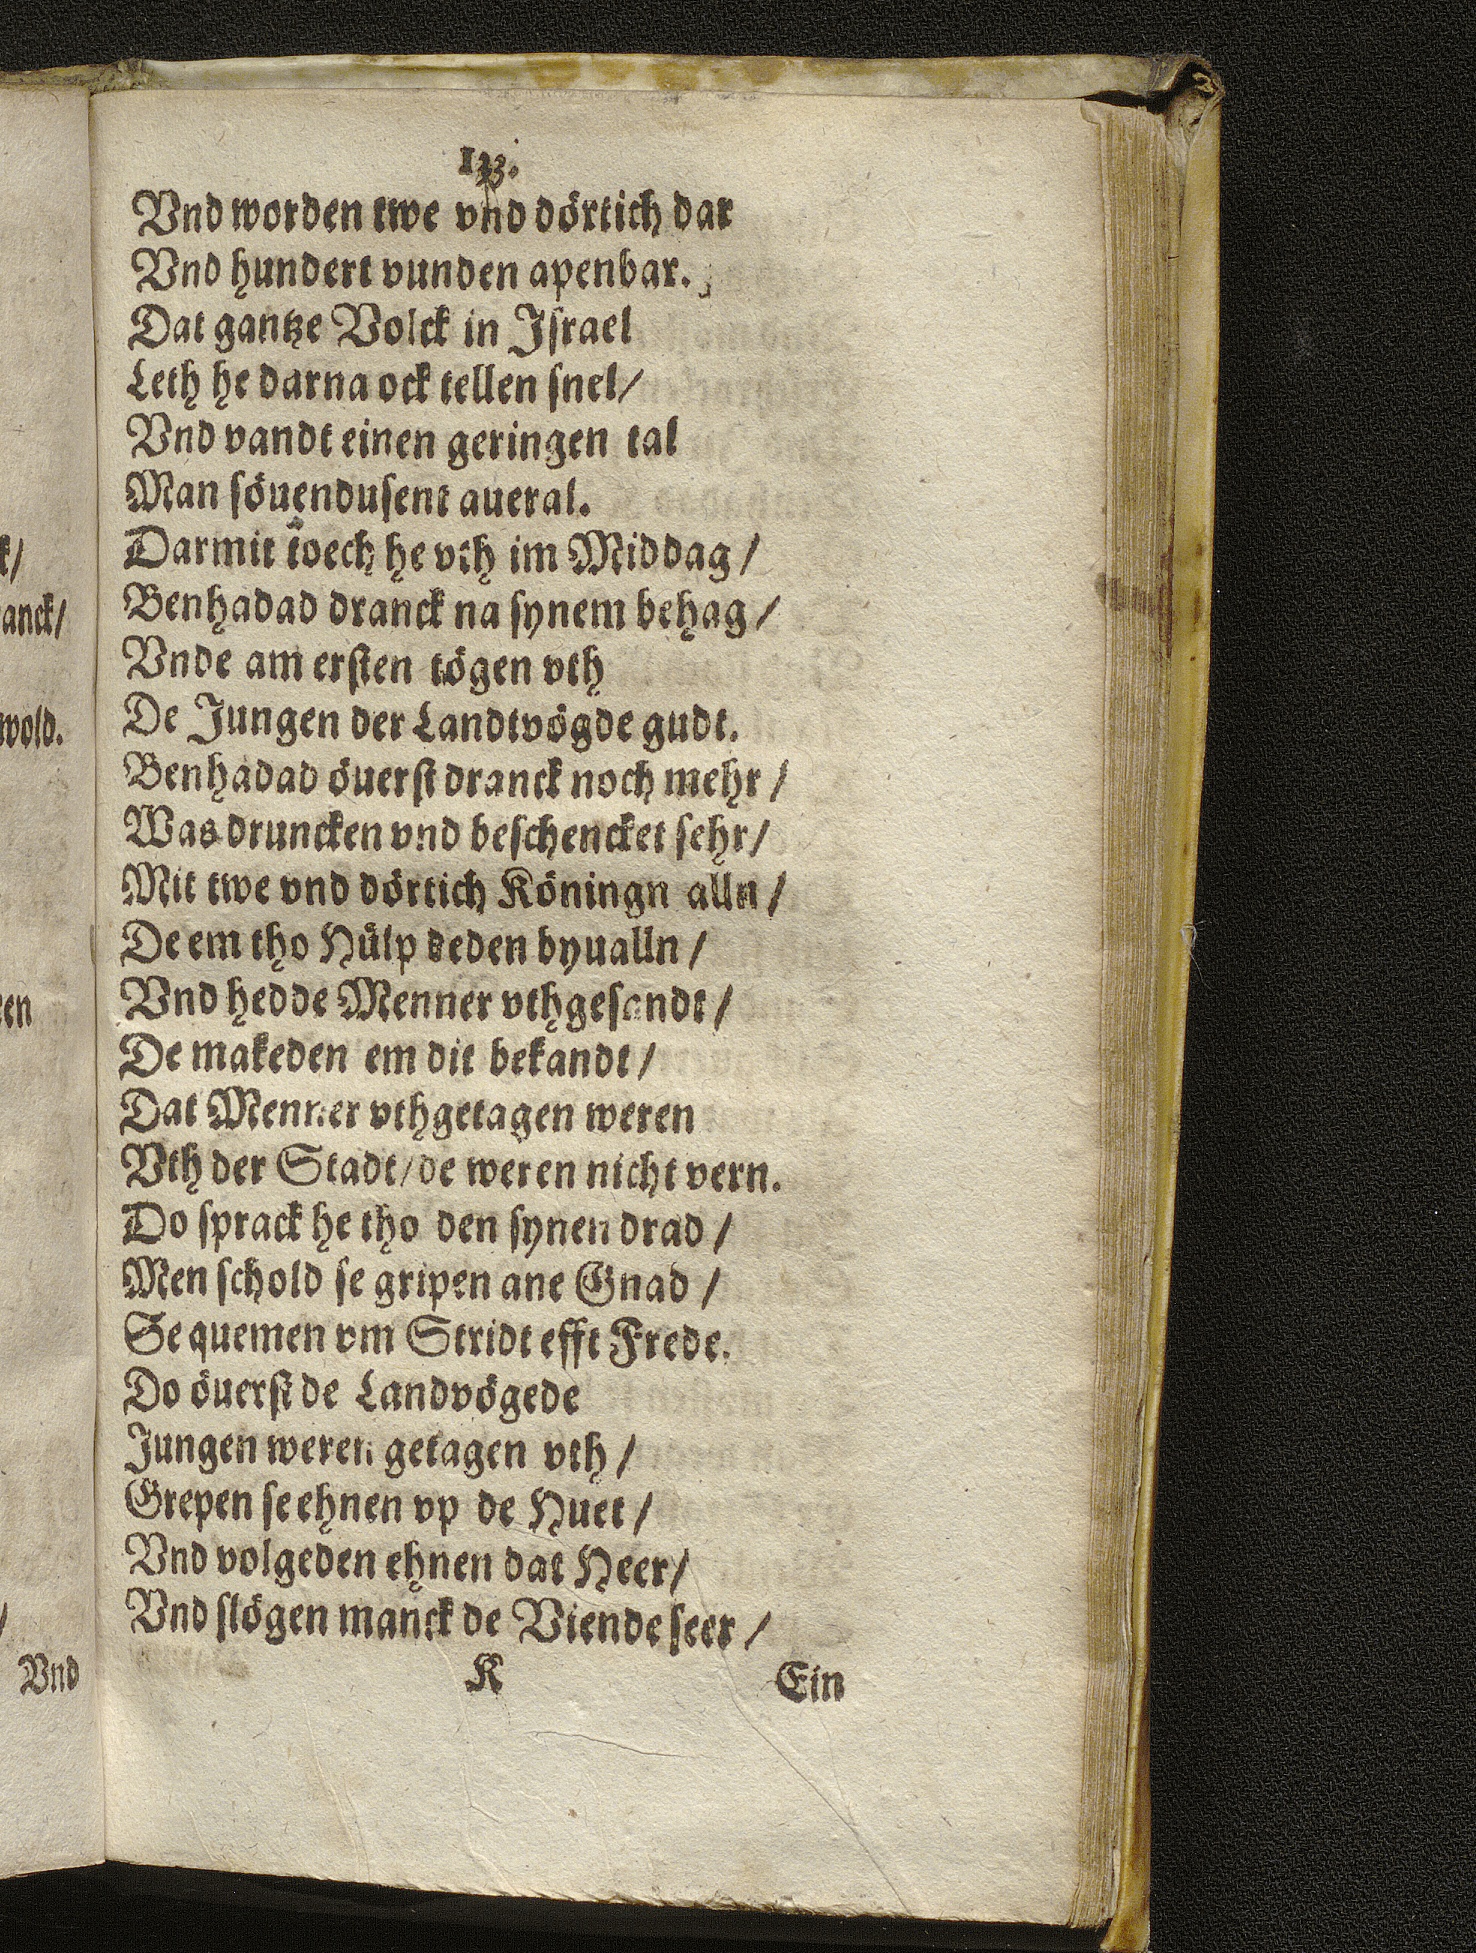 133.
Vnd worden twe vnd dörtich dar
Vnd hundert vunden apenbar.
Dat gantze Volck in Jſrael
Leth he darna ock tellen ſnel/
Vnd vandt einen geringen tal
Man ſöuenduſent aueral.
Darmit toech he vth im Middag/
Benhadad dranck na ſynem behag/
Vnde am erſten tögen vth
De Jungen der Landtvögde gudt.
Benhadad öuerſt dranck noch mehr/
Was druncken vnd beſchencket ſehr/
Mit twe vnd dörtich Köningn alln/
De em tho Hülp deden byualln/
Vnd hedde Menner vthgeſandt/
De makeden em dit bekandt/
Dat Menner vthgetagen weren
Vth der Stadt/de weren nicht vern.
Do ſprack he tho den ſynen drad/
Men ſchold ſe gripen ane Gnad/
Se quemen vm Stridt efft Frede.
Do öuerſt de Landvögede
Jungen weren getagen vth/
Grepen ſe ehnen vp de Huet/
Vnd volgeden ehnen dat Heer/
Vnd ſlögen manck de Viende ſeer/
K Ein
k/
anck/
wold.
en
/
Vnd